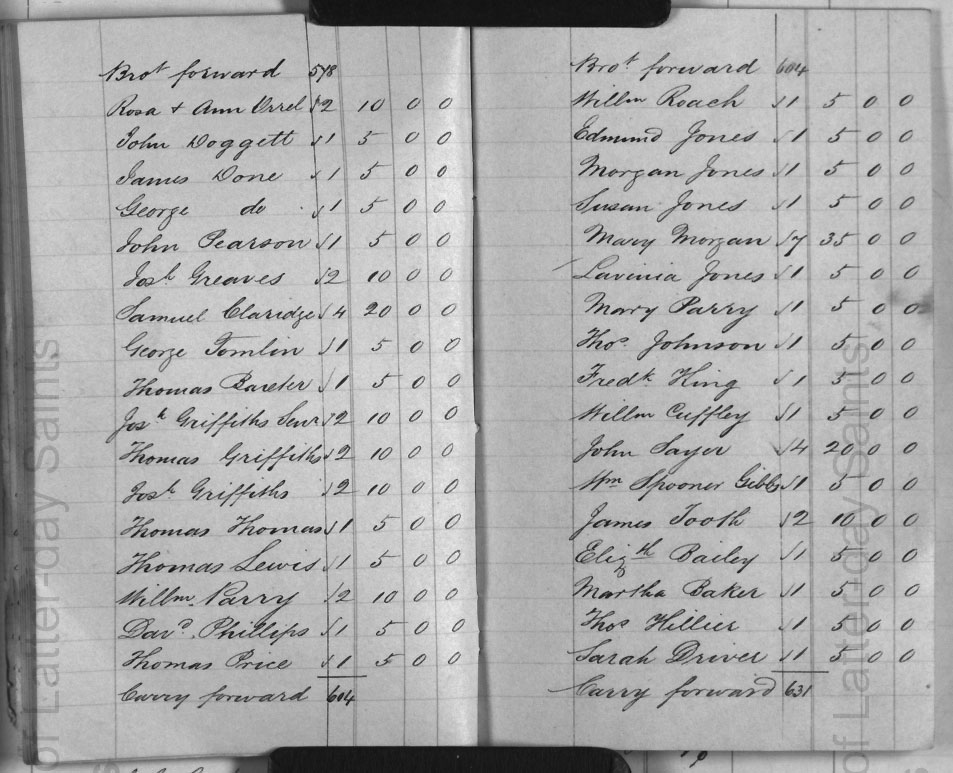 Brot forward 578
Rosa + Ann Orrel √2 10 0 0
John Doggett √1 5 0 0
James Done √1 5 0 0
George do √1 5 0 0
John Pearson √1 5 0 0
Josh Greaves √2 10 0 0
Samuel Claridge √4 20 0 0
George Tomlin √1 5 0 0
Thomas √1 5 0 0
Josh Griffiths Senr √2 10 0 0
Thomas Griffiths √2 10 0 0
Josh Griffiths √2 10 0 0
Thomas Thomas √1 5 0 0
Thomas Lewis √1 5 0 0
Willm Parry √2 10 0 0
Davd Phillips √1 5 0 0
Thomas Price √1 5 0 0
Carry forward 604
Brot forward 604
Willm Roach √1 5 0 0
Edmund Jones √1 5 0 0
Morgan Jones √1 5 0 0
Susan Jones √1 5 0 0
Mary Morgan √7 35 0 0
Lavinia Jones √1 5 0 0
Mary Parry √1 5 0 0
Thos Johnson √1 5 0 0
Fredk King √1 5 0 0
Willm Cuffley √1 5 0 0
John Sayer √4 20 0 0
Wm Spooner Gibbs √1 5 0 0
James Tooth √2 10 0 0
Elizth Bailey √1 5 0 0
Martha Baker √1 5 0 0
Thos Hillier √1 5 0 0
Sarah Driver √1 5 0 0
Carry forward 631
of Latter-day Saints
of Latter-day Saints